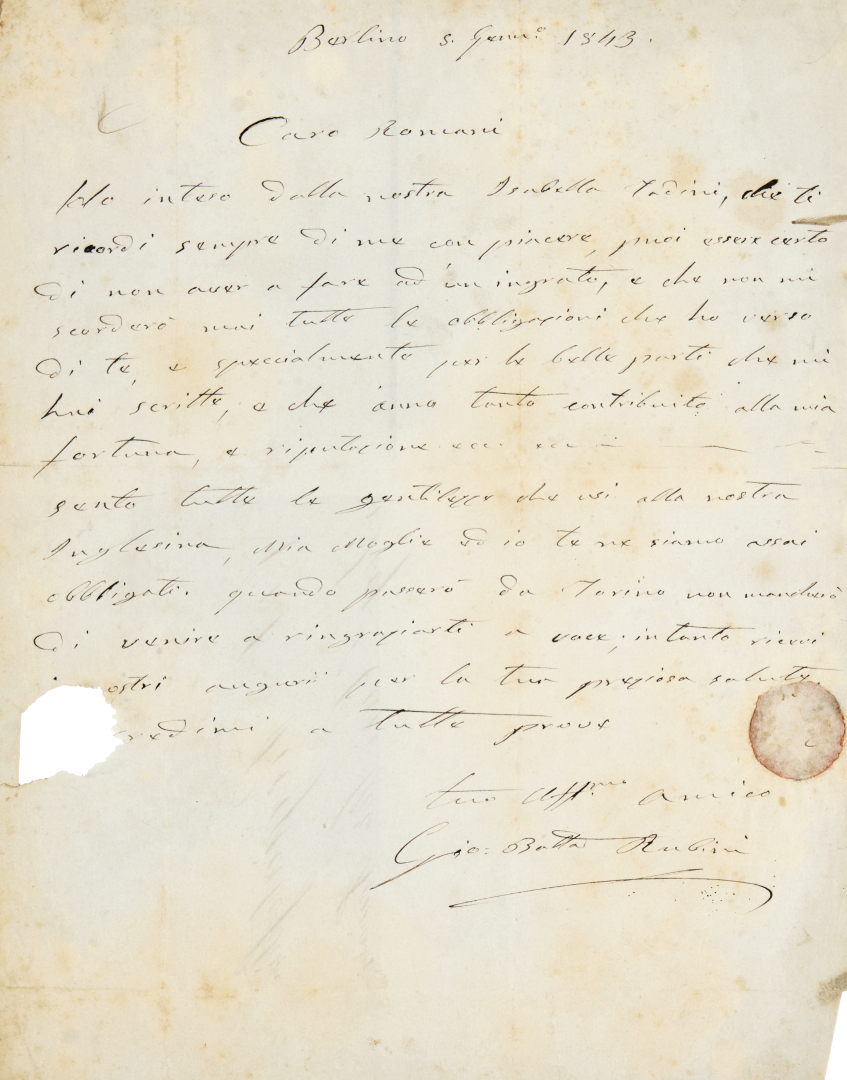 Berlino 5. Genn.o 1843.
Caro Romani
Ho inteso dalla nostra Isabella Fadini, che ti
ricordi sempre di me con piacere, puoi essere certo
di non aver a fare ad un ingrato, e che non mi
scorderò mai tutte le obbligazioni che ho verso
di te, e specialmente per le belle parti che mi
hai scritte, e che anno tanto contribuito alla mia
fortuna, e riputazione ecc: ecc
sento tutte le gentilezze che usi alla nostra
Inglesina, Mia Moglie ed io te ne siamo assai
obbligati. quando passerò da Torino non mancherò
di venire a ringraziarti a voce; intanto ricevi
i nostri augurii per la tua preziosa salute.
credimi a tutte prove
tuo Aff.mo Amico
Gio: Batta Rubini